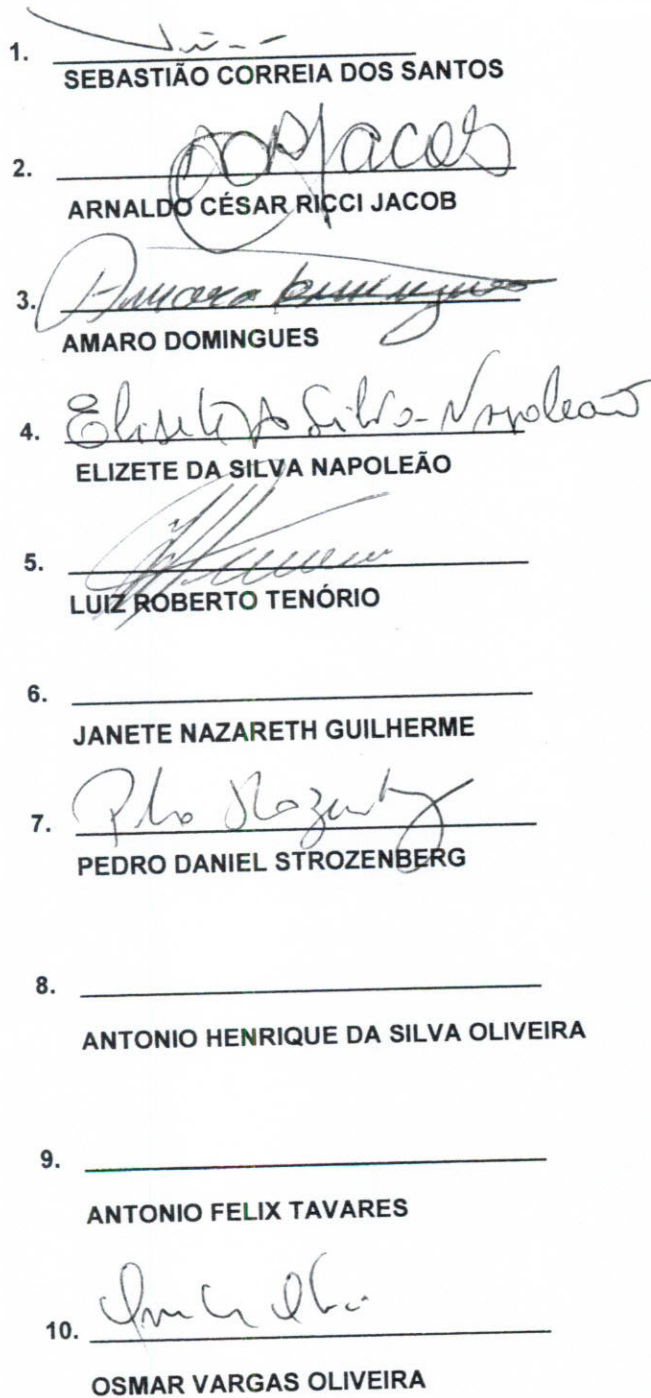 1.
SEBASTIÃO CORREIA DOS SANTOS
2. Jacob
ARNALDO CÉSAR RICCI JACOB
3. Amaro Domingues
AMARO DOMINGUES
4. Elizete da Silva Napoleão
ELIZETE DA SILVA NAPOLEÃO
5.
LUIZ ROBERTO TENÓRIO
6.
JANETE NAZARETH GUILHERME
7.
PEDRO DANIEL STROZENBERG
8.
ANTONIO HENRIQUE DA SILVA OLIVEIRA
9.
ANTONIO FELIX TAVARES
10.
OSMAR VARGAS OLIVEIRA